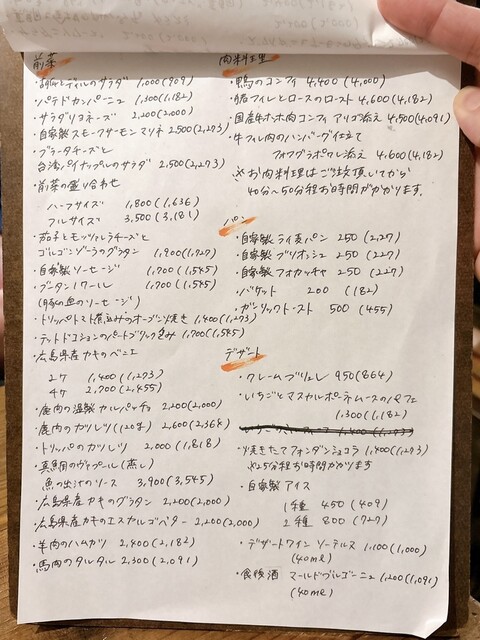 前菜
・胡瓜とディルのサラダ 1,000(909)
・パテドカンパーニュ 1,300(1,182)
・サラダリヨネーズ 2,200(2,000)
・自家製スモークサーモンマリネ 2,500(2,273)
・ブラータチーズと
台湾パイナップルのサラダ 2,500(2,273)
・前菜の盛り合わせ
ハーフサイズ 1,800(1,636)
フルサイズ 3,500(3,181)
・茄子とモッツァレラチーズと
ゴルゴンゾーラのグラタン 1,900(1,727)
・自家製ソーセージ 1,700(1,545)
・ブータンノワール 1,700(1,545)
(豚の血のソーセージ)
・トリッパトマト煮込みのオーブン焼き 1,400(1,273)
・テットドコションのパートブリック包み 1,700(1,545)
・広島県産カキのベニエ
2ケ 1,400(1,273)
4ケ 2,700(2,455)
・鹿肉の温製カルパッチョ 2,200(2,000)
・鹿肉のカツレツ(120g) 2,600(2,364)
・トリッパのカツレツ 2,000(1,818)
・真鯛のヴァプール(蒸し)
魚の出汁のソース 3,900(3,545)
・広島県産カキのグラタン 2,200(2,000)
・広島県産カキのエスカルゴバター 2,200(2,000)
・羊肉のハムカツ 2,400(2,182)
・馬肉のタルタル 2,300(2,091)
肉料理
・鴨のコンフィ 4,400(4,000)
・豚フィレとロースのロースト 4,600(4,182)
・国産牛ホホ肉コンフィ アリゴ添え 4,500(4,091)
・牛フィレ肉のハンバーグ仕立て
フォアグラポワレ添え 4,600(4,182)
※お肉料理はご注文頂いてから
40分～50分程お時間がかかります。
パン
・自家製ライ麦パン 250(227)
・自家製ブリオッシュ 250(227)
・自家製フォカッチャ 250(227)
・バゲット 200(182)
・ガーリックトースト 500(455)
デザート
・クレームブリュレ 950(864)
・いちごとマスカルポーネムースのパフェ
1,300(1,182)
・焼きたてフォンダンショコラ 1,400(1,273)
※25分程お時間かかります
・自家製アイス
1種 450(409)
2種 800(727)
・デザートワイン ソーテルヌ 1,100(1,000)
(40ml)
・食後酒 マールドブルゴーニュ 1,200(1,091)
(40ml)